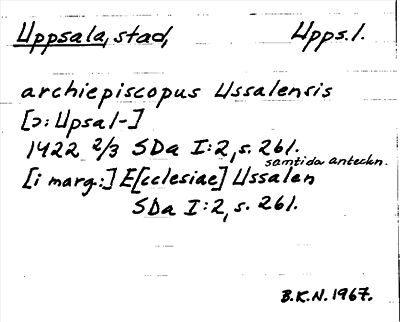 Uppsala, stad, Upps.l.
archiepiscopus Ussalensis
[ɔ: Upsal-]
1422 2/3 SDa I:2, s. 261.
samtida anteckn.
[i marg.:] E[cclesiae] Ussalen
SDa I:2, s. 261.
B.K.N. 1967.